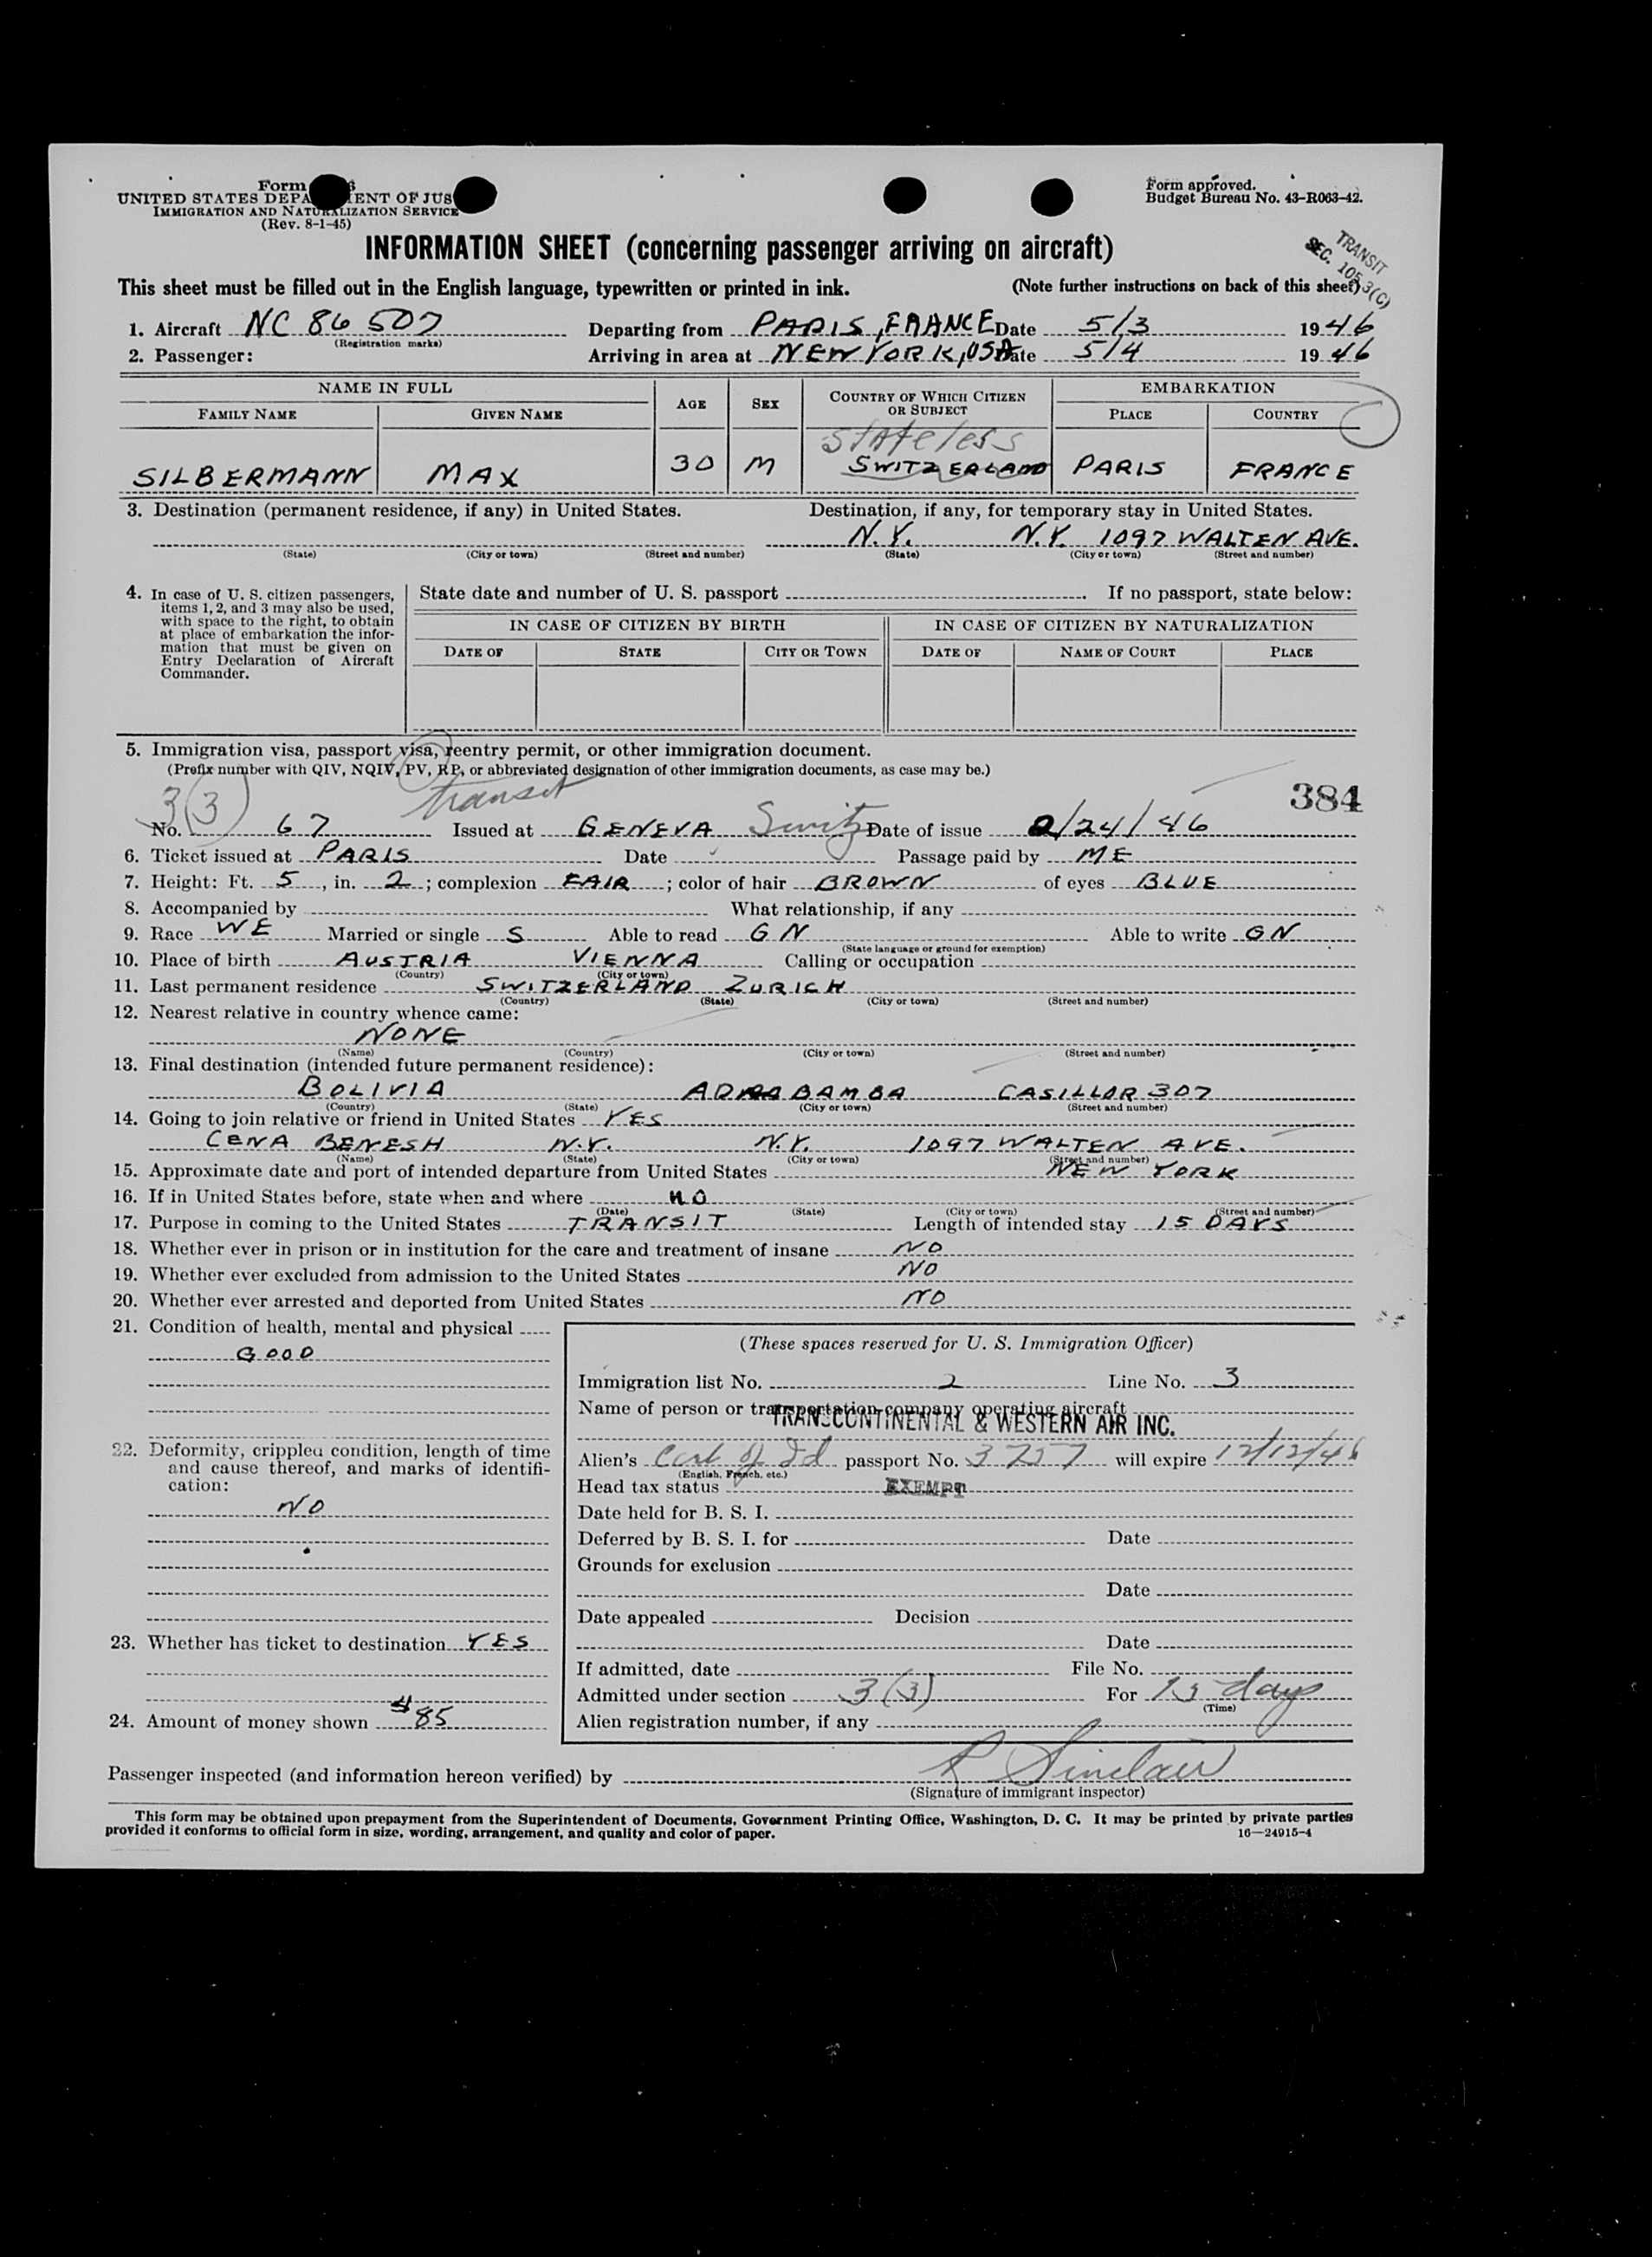 Form
UNITED STATES DEPA ENT OF JUS
IMMIGRATION AND NATURALIZATION SERVICE
(Rev. 8-1-45)
Form approved.
Budget Bureau No. 43-R063-42.
INFORMATION SHEET (concerning passenger arriving on aircraft)
TRANSIT
SEC. 105.3(C)
This sheet must be filled out in the English language, typewritten or printed in ink. (Note further instructions on back of this sheet)
1. Aircraft NC 86507 Departing from PARIS, FRANCE Date 5/3 1946
(Registration marks)
2. Passenger: Arriving in area at NEW YORK, USA Date 5/4 1946
NAME IN FULL AGE SEX COUNTRY OF WHICH CITIZEN OR SUBJECT EMBARKATION
FAMILY NAME GIVEN NAME PLACE COUNTRY
Stateless
SILBERMANN MAX 30 M SWITZERLAND PARIS FRANCE
3. Destination (permanent residence, if any) in United States. Destination, if any, for temporary stay in United States.
N.Y. N.Y. 1097 WALTEN AVE.
(State) (City or town) (Street and number) (State) (City or town) (Street and number)
4. In case of U. S. citizen passengers, items 1, 2, and 3 may also be used, with space to the right, to obtain at place of embarkation the information that must be given on Entry Declaration of Aircraft Commander.
State date and number of U. S. passport If no passport, state below:
IN CASE OF CITIZEN BY BIRTH IN CASE OF CITIZEN BY NATURALIZATION
DATE OF STATE CITY OR TOWN DATE OF NAME OF COURT PLACE
5. Immigration visa, passport visa, reentry permit, or other immigration document.
(Prefix number with QIV, NQIV, PV, RP, or abbreviated designation of other immigration documents, as case may be.)
3(3) transit 384
No. 67 Issued at GENEVA Switz Date of issue 2/24/46
6. Ticket issued at PARIS Date Passage paid by ME
7. Height: Ft. 5, in. 2; complexion FAIR; color of hair BROWN of eyes BLUE
8. Accompanied by What relationship, if any
9. Race WE Married or single S Able to read GN Able to write GN
(State language or ground for exemption)
10. Place of birth AUSTRIA VIENNA Calling or occupation
(Country) (City or town)
11. Last permanent residence SWITZERLAND ZURICH
(Country) (State) (City or town) (Street and number)
12. Nearest relative in country whence came:
NONE
(Name) (Country) (City or town) (Street and number)
13. Final destination (intended future permanent residence):
BOLIVIA CASILLOR 307
(Country) (State) (City or town) (Street and number)
14. Going to join relative or friend in United States YES
CENA BENESH N.Y. N.Y. 1097 WALTEN AVE.
(Name) (State) (City or town) (Street and number)
15. Approximate date and port of intended departure from United States NEW YORK
16. If in United States before, state when and where NO
(Date) (State) (City or town) (Street and number)
17. Purpose in coming to the United States TRANSIT Length of intended stay 15 DAYS
18. Whether ever in prison or in institution for the care and treatment of insane NO
19. Whether ever excluded from admission to the United States NO
20. Whether ever arrested and deported from United States NO
21. Condition of health, mental and physical
GOOD
22. Deformity, crippled condition, length of time and cause thereof, and marks of identification:
NO
23. Whether has ticket to destination YES
24. Amount of money shown $85
(These spaces reserved for U. S. Immigration Officer)
Immigration list No. 2 Line No. 3
Name of person or transportation company operating aircraft
TRANSCONTINENTAL & WESTERN AIR INC.
Alien's Cert of Id passport No. 3757 will expire 12/12/46
(English, French, etc.)
Head tax status EXEMPT
Date held for B. S. I.
Deferred by B. S. I. for Date
Grounds for exclusion
Date
Date appealed Decision
Date
If admitted, date File No.
Admitted under section 3(3) For 15 days
(Time)
Alien registration number, if any
Passenger inspected (and information hereon verified) by R Sinclair
(Signature of immigrant inspector)
This form may be obtained upon prepayment from the Superintendent of Documents, Government Printing Office, Washington, D. C. It may be printed by private parties
provided it conforms to official form in size, wording, arrangement, and quality and color of paper. 16—24915-4